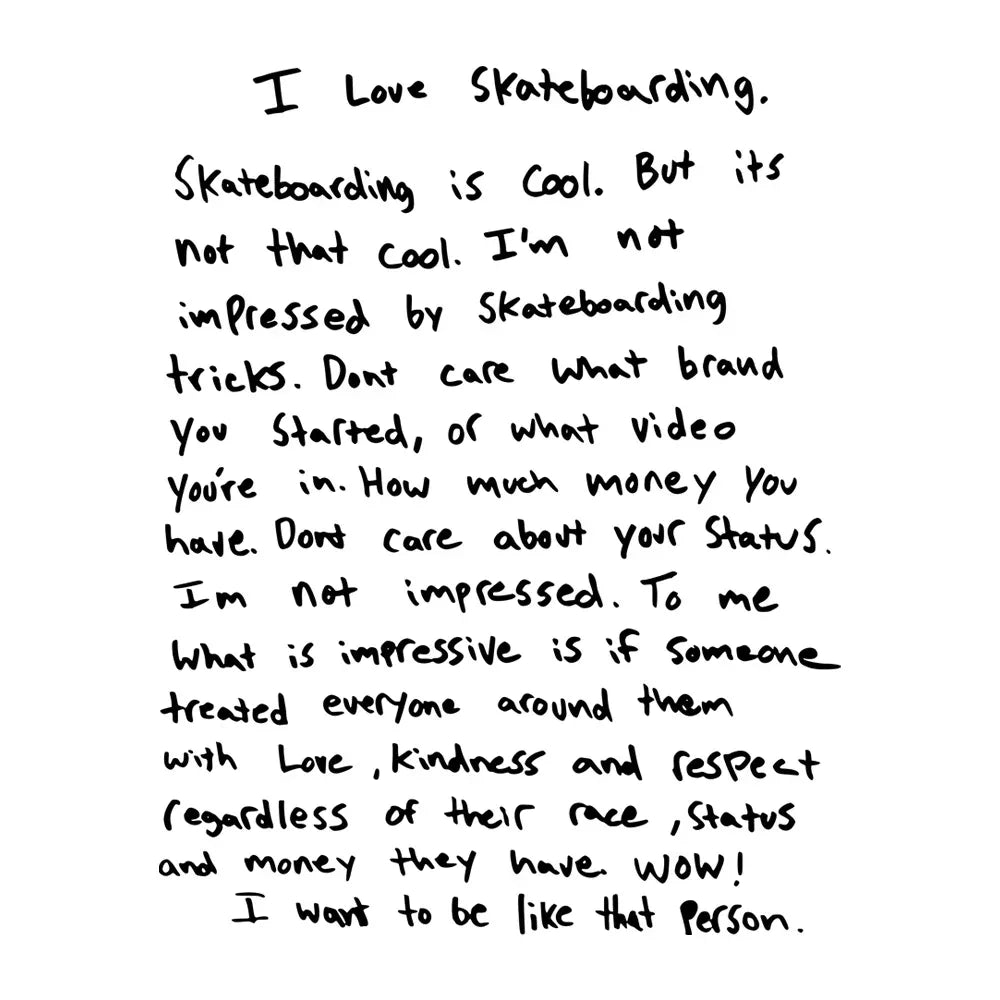 I Love Skateboarding.
Skateboarding is cool. But its
not that cool. I'm not
impressed by skateboarding
tricks. Dont care what brand
you started, or what video
you're in. How much money you
have. Dont care about your status.
Im not impressed. To me
what is impressive is if someone
treated everyone around them
with Love, kindness and respect
regardless of their race, status
and money they have. WOW!
I want to be like that person.